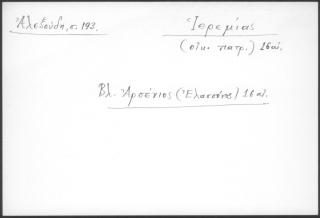 Ἀλεξούδη, σ. 193.
Ἱερεμίας
(οἰκ. πατρ.) 16 αἰ.
Βλ. Ἀρσένιος (Ἐλασσόνος) 16 αἰ.